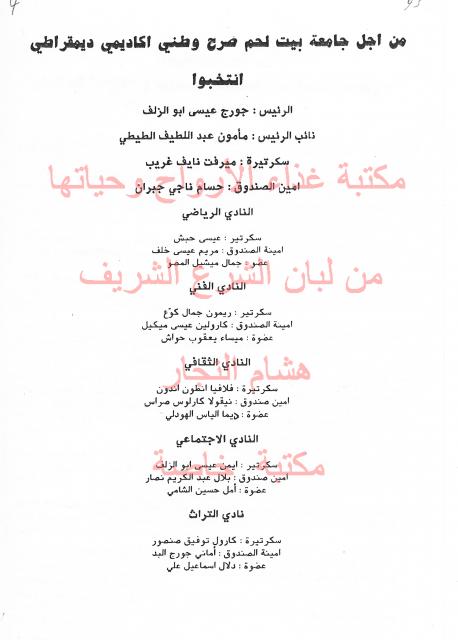 من اجل جامعة بيت لحم صرح وطني اكاديمي ديمقراطي
انتخبوا
الرئيس : جورج عيسى ابو الزلف
نائب الرئيس : مأمون عبد اللطيف الطيطي
سكرتيرة : ميرفت نايف غريب
مكتبة غذاء الأرواح وحياتها
امين الصندوق : حسام ناجي جبران
النادي الرياضي
سكرتير : عيسى حبش
امينة الصندوق : مريم عيسى خلف
عضو : جمال ميشيل
من لبان الشرع الشريف
النادي الفني
سكرتير : ريمون جمال
امينة الصندوق : كارولين عيسى ميكيل
عضوة : ميساء يعقوب حواش
النادي الثقافي
هشام النجار
سكرتيرة : فلافيا انطون اندون
امين صندوق : نيقولا كارلوس صراس
عضوة : ديما الياس الهودلي
النادي الاجتماعي
سكرتير : ايمن عيسى ابو الزلف
مكتبة خاصة
امين صندوق : بلال عبد الكريم نصار
عضوة : أمل حسين الشامي
نادي التراث
سكرتيرة : كارول توفيق صنصور
امينة الصندوق : أماني جورج البد
عضوة : دلال اسماعيل علي